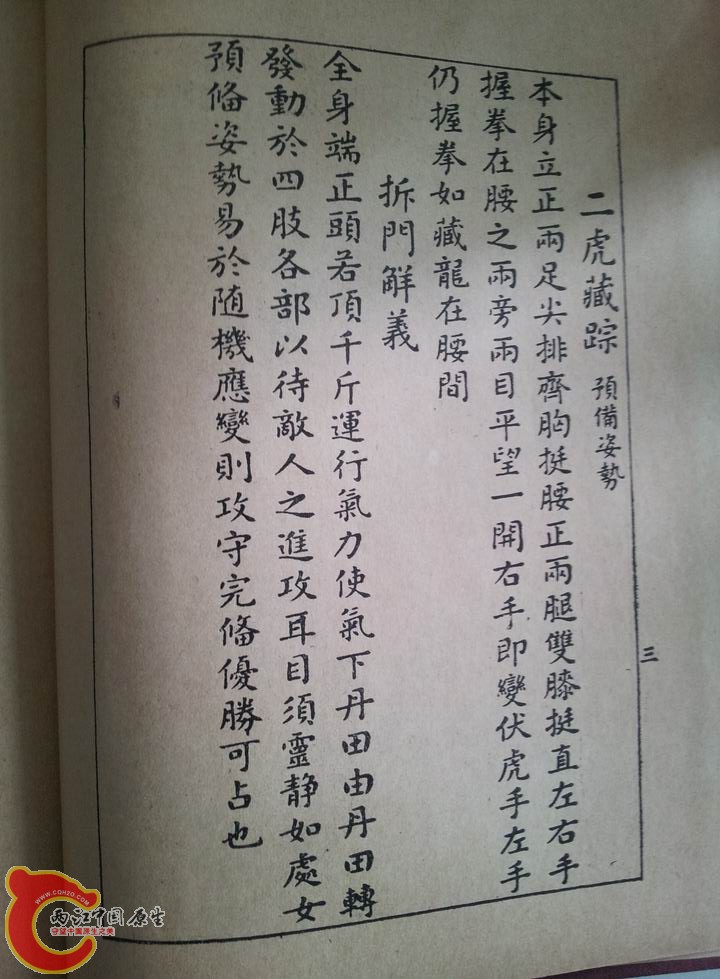 二虎藏踪 預備姿勢
本身立正兩足尖排齊胸挺腰正兩腿雙膝挺直左右手
握拳在腰之兩旁兩目平望一開右手即變伏虎手左手
仍握拳如藏龍在腰間
拆門解義
全身端正頭若頂千斤運行氣力使氣下丹田由丹田轉
發動於四肢各部以待敵人之進攻耳目須靈静如處女
預俻姿勢易於随機應變則攻守完俻優勝可占也
三
WWW.CQH2O.COM
两江中国原生
守望中國原生之美